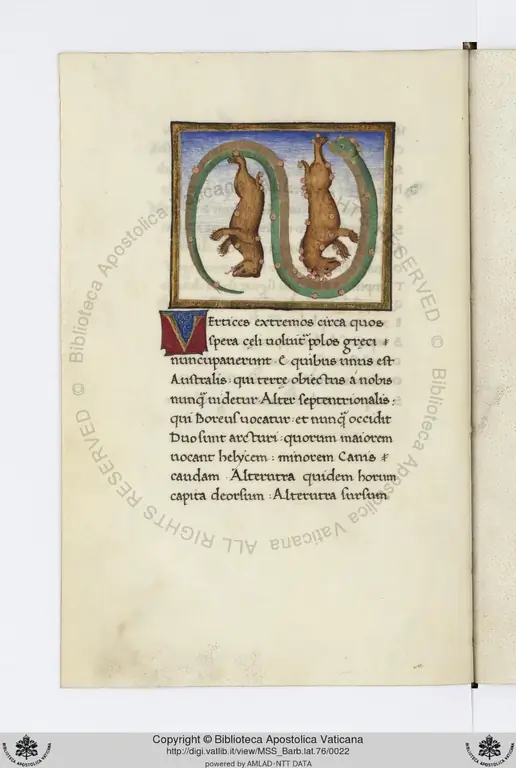 VErtices extremos circa quos
spera celi uoluit᷑ polos greci
nuncupauerunt E quibus unus est
Australis: qui terre obiectus a nobis
nunq̃ uidetur Alter septentrionalis:
qui Boreus uocatur: et nunq̃ occidit
Duo sunt arcturi: quorum maiorem
uocant helycem: minorem Canis
caudam. Alterutra quidem horum
capita deorsum: Alterutra sursum
© Biblioteca Apostolica Vaticana ALL RIGHTS RESERVED
Copyright © Biblioteca Apostolica Vaticana
http://digi.vatlib.it/view/MSS_Barb.lat.76/0022
powered by AMLAD-NTT DATA